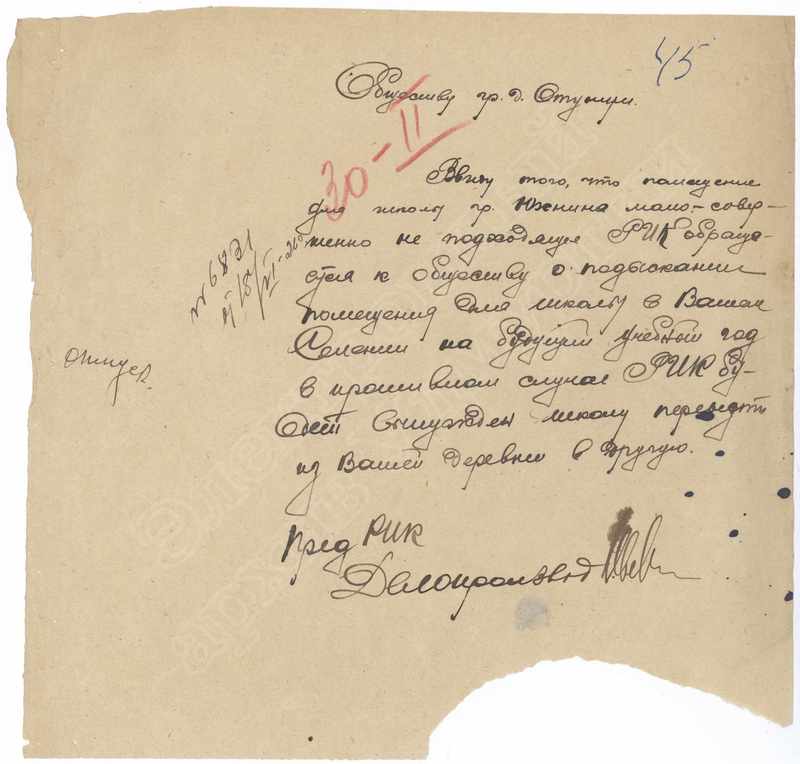 45
Обществу гр. д. Ступири.
30-II
Ввиду того, что помещение
для школы гр. Южнина мало-совер-
шенно не подходящее РИК обраща-
ется к обществу о подыскании
помещения для школы в Вашем
Селении на будущий учебный год
в противном случае РИК бу-
дет вынужден школу перевести
из Вашей деревни в другую.
№ 6831
отпуск.
Пред РИК
Делопроизвод